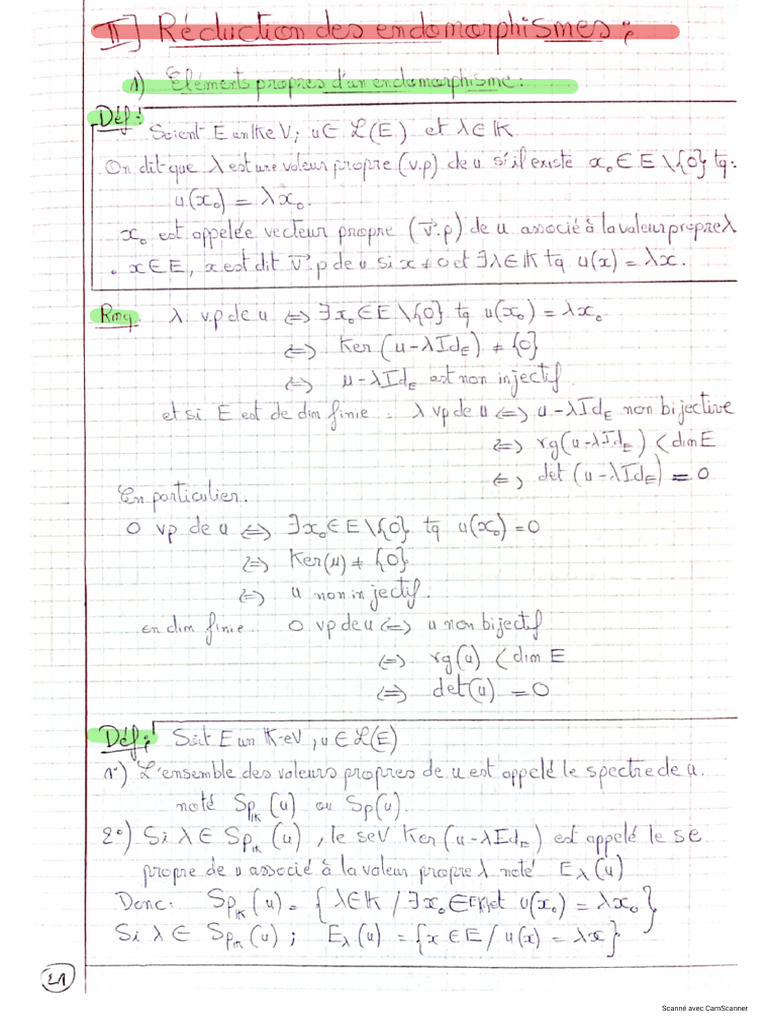 II] Réduction des endomorphismes :
1) Eléments propres d'un endomorphisme :
Déf :
Soient E un K e V ; u ∈ L(E) et λ ∈ K
On dit que λ est une valeur propre (v.p) de u s'il existe x₀ ∈ E \ {0} tq :
u(x₀) = λx₀.
x₀ est appelée vecteur propre (v⃗.p) de u associé à la valeur propre λ
• x ∈ E, x est dit v⃗.p de u si x ≠ 0 et ∃λ ∈ K tq u(x) = λx.
Rmq. λ v.p de u ⟺ ∃x₀ ∈ E \ {0} tq u(x₀) = λx₀
⟺ Ker(u - λId_E) ≠ {0}
⟺ u - λId_E est non injectif.
et si E est de dim finie. λ vp de u ⟺ u - λId_E non bijective
⟺ rg(u - λId_E) < dim E
⟺ det(u - λId_E) = 0
En particulier.
0 vp de u ⟺ ∃x₀ ∈ E \ {0} tq u(x₀) = 0
⟺ Ker(u) ≠ {0}
⟺ u non injectif.
en dim finie. 0 vp de u ⟺ u non bijectif
⟺ rg(u) < dim E
⟺ det(u) = 0
Déf : Soit E un K-eV, u ∈ L(E)
1°) L'ensemble des valeurs propres de u est appelé le spectre de u.
noté Sp_K(u) ou Sp(u).
2°) Si λ ∈ Sp_K(u), le seV Ker(u - λId_E) est appelé le se
propre de u associé à la valeur propre λ noté E_λ(u)
Donc : Sp_K(u) = {λ ∈ K / ∃x₀ ∈ E\{0} et u(x₀) = λx₀}
Si λ ∈ Sp_K(u) ; E_λ(u) = {x ∈ E / u(x) = λx}
21
Scanné avec CamScanner